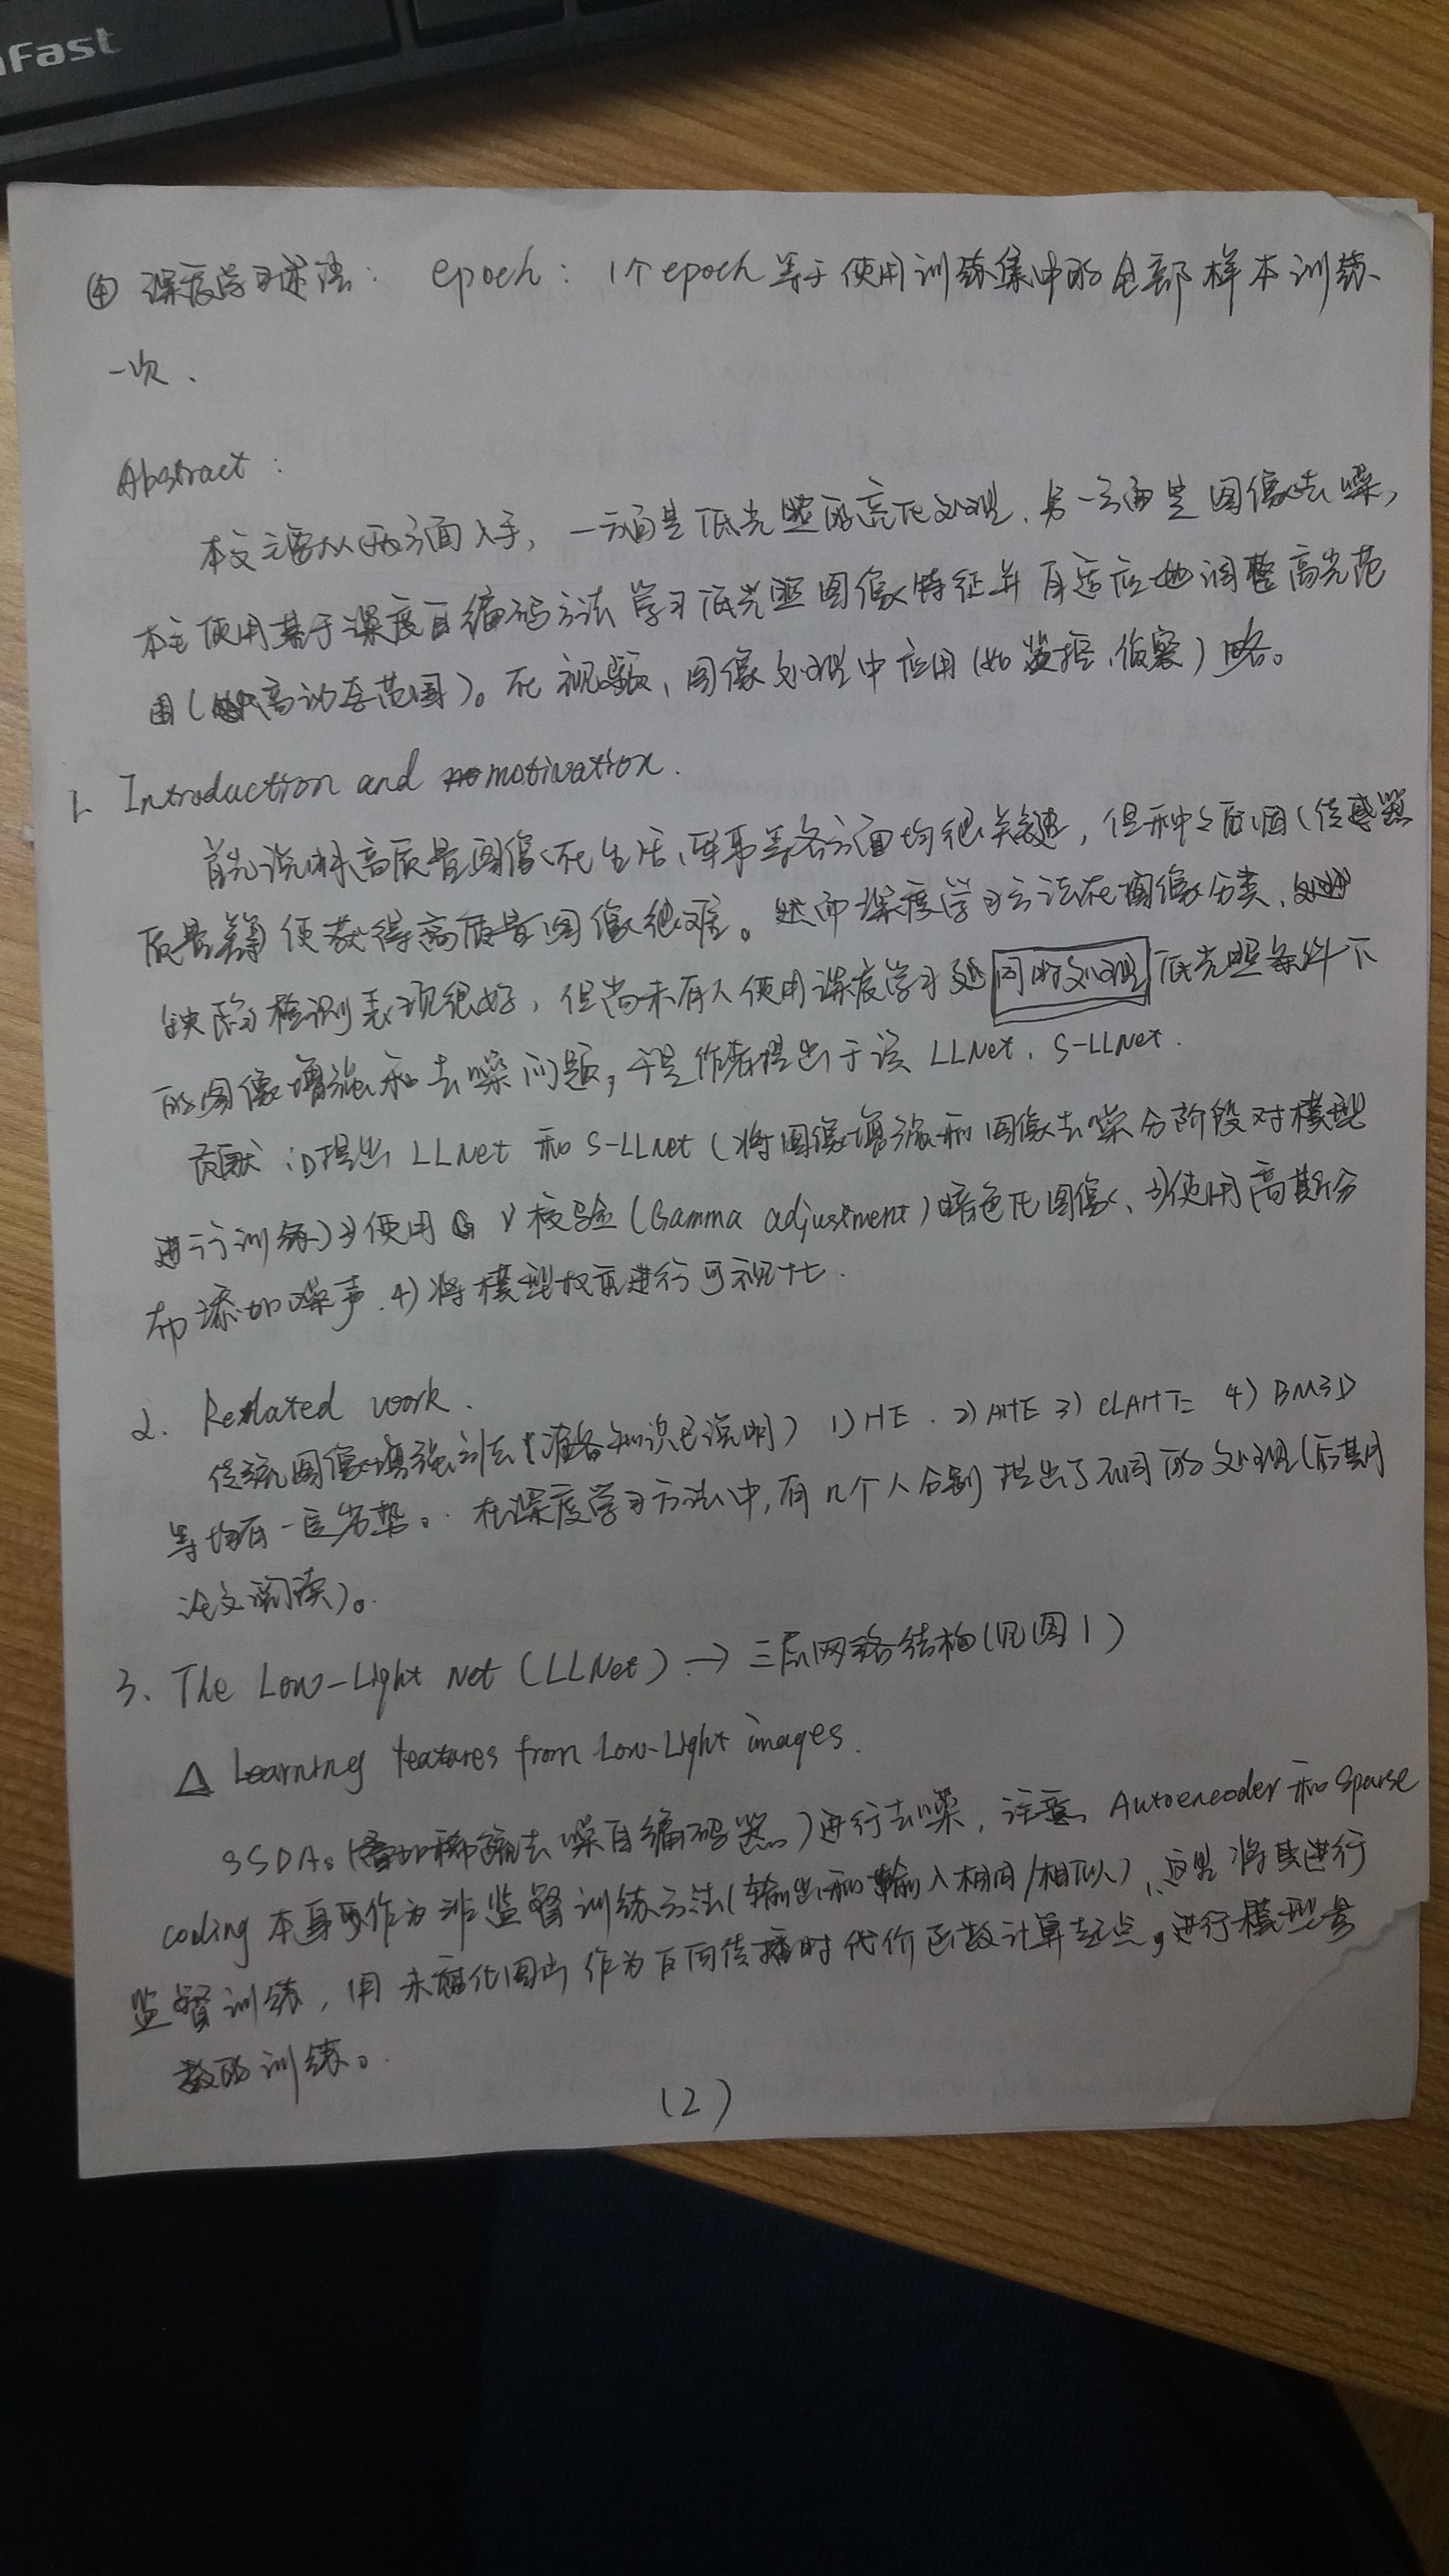 nFast
④ 深度学习述语： epoch： 1个epoch等于使用训练集中的全部样本训练
一次、
Abstract：
本文主要从两方面入手，一方面是低光照的亮化处理、另一方面是图像去噪，
本文使用基于深度自编码方法学习低光照图像特征并自适应地调整高光范
围（高动态范围）。在视频、图像处理中应用（如监控、侦察）略。
1. Introduction and motivation.
首先说明高质量图像在生活、军事等各方面均很关键，但种种原因（传感器
质量差等）使获得高质量图像很难。然而深度学习方法在图像分类、
缺陷检测表现很好，但尚未有人使用深度学习 同时处理 低光照条件下
的图像增强和去噪问题，于是作者提出了该 LLNet、S-LLNet.
贡献：1)提出 LLNet 和 S-LLNet（将图像增强和图像去噪分阶段对模型
进行训练）2)使用 γ校验（Gamma adjustment）暗色化图像、3)使用高斯分
布添加噪声.4)将模型权重进行可视化.
2. Related work.
传统图像增强方法（准备知识已说明）1)HE. 2)AHE 3)CLAHE 4)BM3D
等均有一定劣势。在深度学习方法中，有几个人分别提出了不同的处理（后期
论文阅读）。
3. The Low-Light Net (LLNet) → 三层网络结构（见图1）
△ Learning features from Low-Light images.
SSDA。（叠加稀疏去噪自编码器）进行去噪，注意、Autoencoder 和 Sparse
coding 本身作为非监督训练方法（输出和输入相同/相似）、这里将其进行
监督训练，用未 作为反向传播时代价函数计算起点，进行模型参
数的训练。
(2)